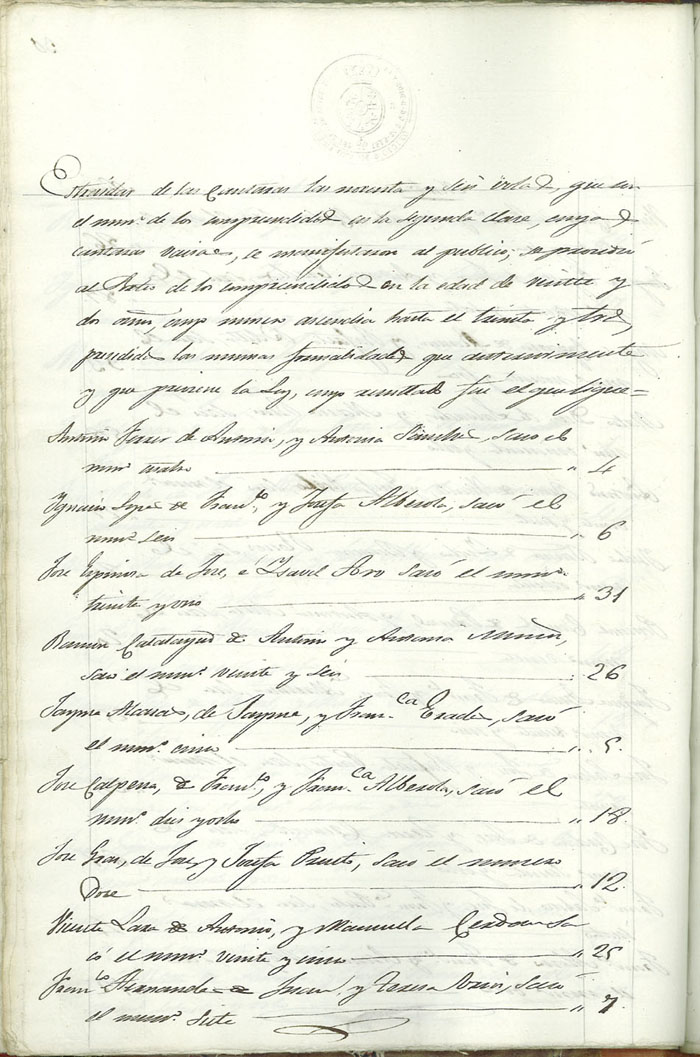 Extraidas de los Cantaros las noventa y seis bolas, que son
el num.º de los comprendidos en la segunda clase, cuyos
cantaros vacios, se manifestaron al publico; se procedió
al Sorteo de los comprendidos en la edad de veinte y
dos años, cuyo numero ascendia hasta el treinta y tres,
precedidas las mismas formalidades que anteriormente
y que previene la Ley, cuyo resultado fué el que sigue=
Antonio Ferrer de Antonio, y Antonia Sanchez, sacó el
num.º cuatro " 4
Ygnacio Lopez de Fran.co, y Josefa Alberola, sacó el
num.º seis " 6
Jose Espinosa de Jose, e Ysavel Aro sacó el num.º
treinta y uno " 31
Ramon Calatayud de Antonio y Antonia
sacó el num.º veinte y seis " 26
Jayme de Jayme, y Fran.ca sacó
el num.º cinco " 5.
Jose Calpena, de Fran.co, y Fran.ca Alberola, sacó el
num.º dies y ocho " 18.
Jose de Jose y Josefa Prieto, sacó el numero
Doce " 12.
Vicente de Antonio, y Manuela Cerdan Sa
có el num.º veinte y cinco " 25
Fran.co Hernandez de Juan y Teresa sacó
el num.º Siete " 7